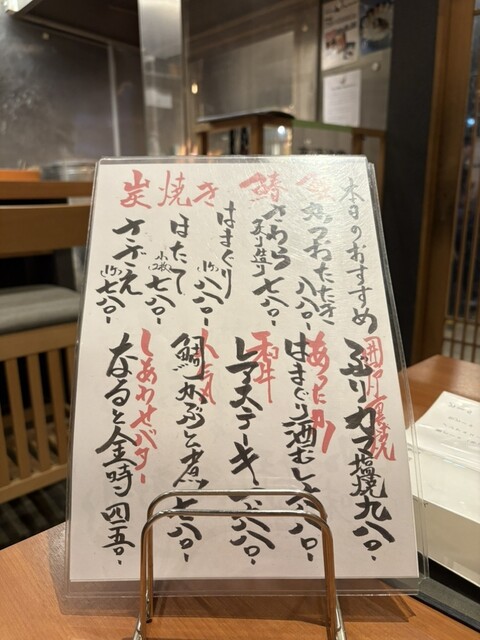 本日のおすすめ
かつおたたき 八八〇-
鰆
さわら
炙り造り 七八〇-
炭焼き
はまぐり(1ヶ) 八八〇-
ほたて(小2枚) 七八〇-
さざえ(1ヶ) 七八〇-
ぶりカマ塩焼 九八〇-
あったか
はまぐり酒むし 八八〇-
和牛
レアステーキ
人気
鯛かぶと煮 七八〇-
しあわせバター
なると金時 四五〇-